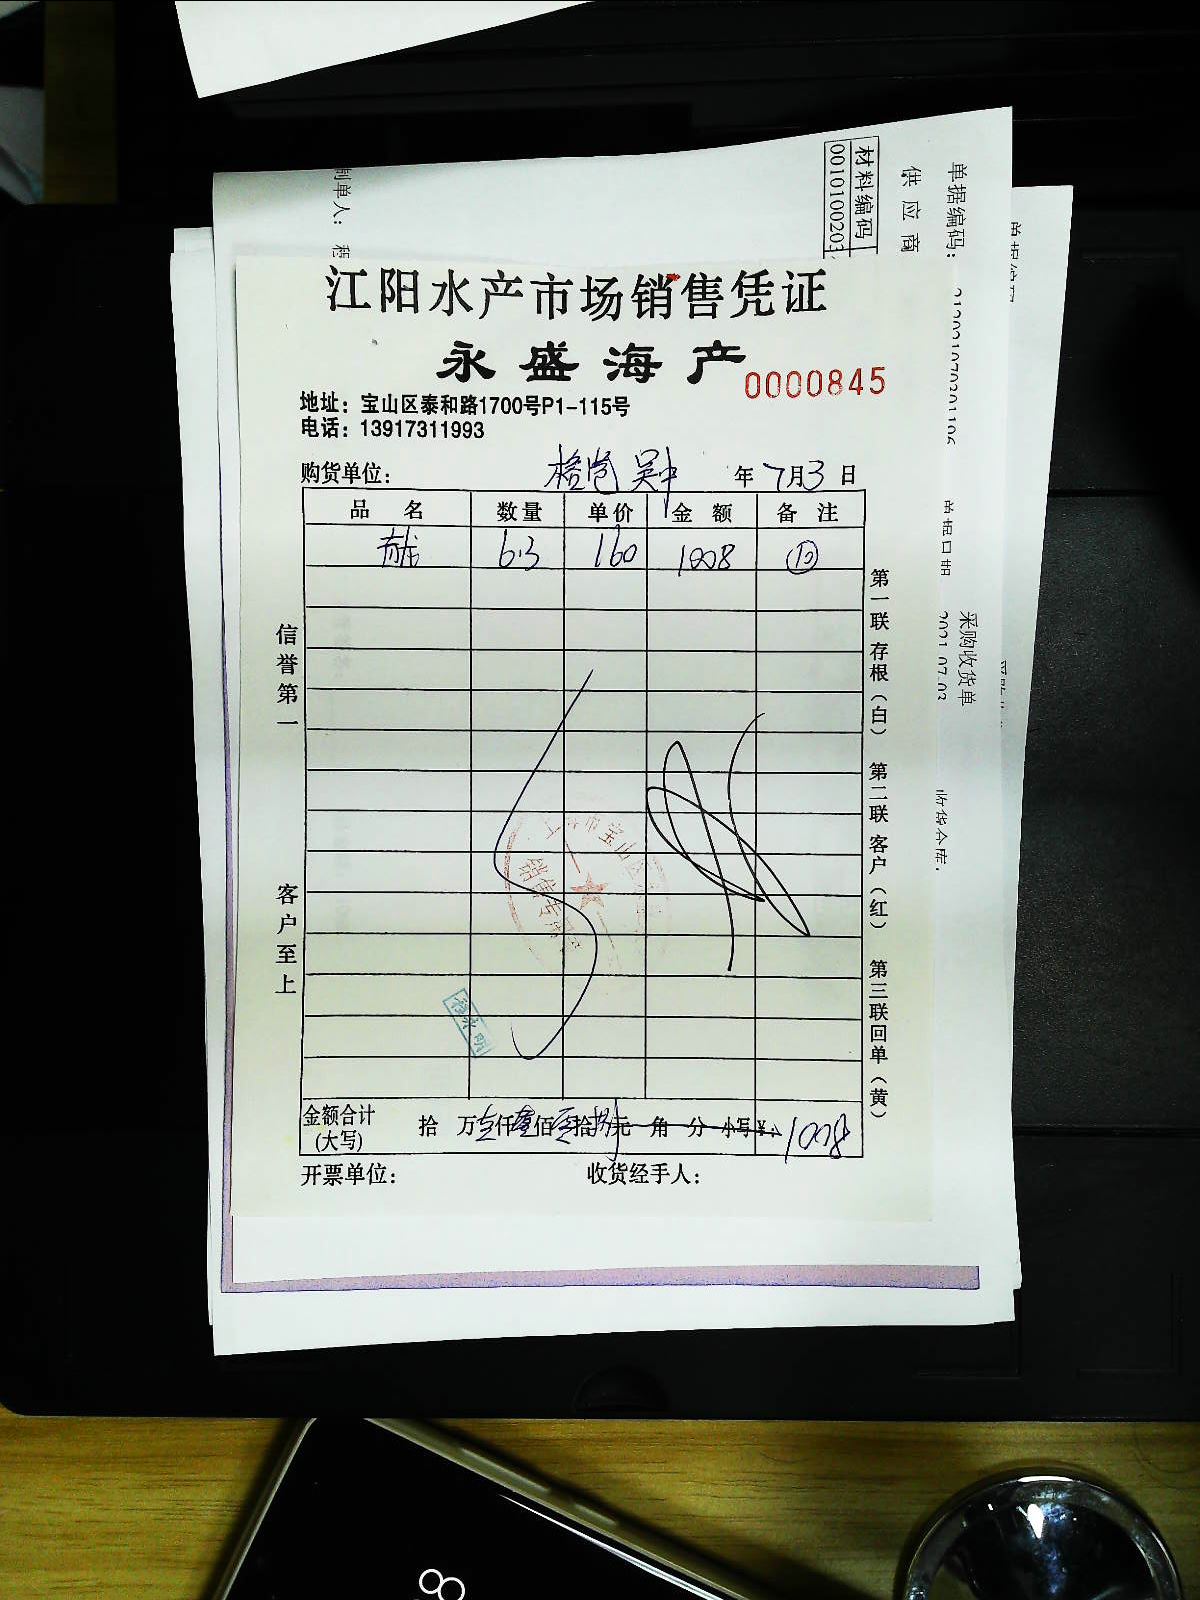 材料编码
单据编码:
供应商
制单人:
江阳水产市场销售凭证
永盛海产
0000845
地址：宝山区泰和路1700号P1-115号
电话：13917311993
购货单位: 年7月3日
品名 数量 单价 金额 备注
6.3 160 1008 ⑩
信誉第一
客户至上
第一联 存根（白） 第二联 客户（红） 第三联 回单（黄）
采购收货单
2021-07-03
销售专用
金额合计 拾 万壹仟零佰零拾捌元 角 分 小写¥: 1008
(大写)
开票单位: 收货经手人: